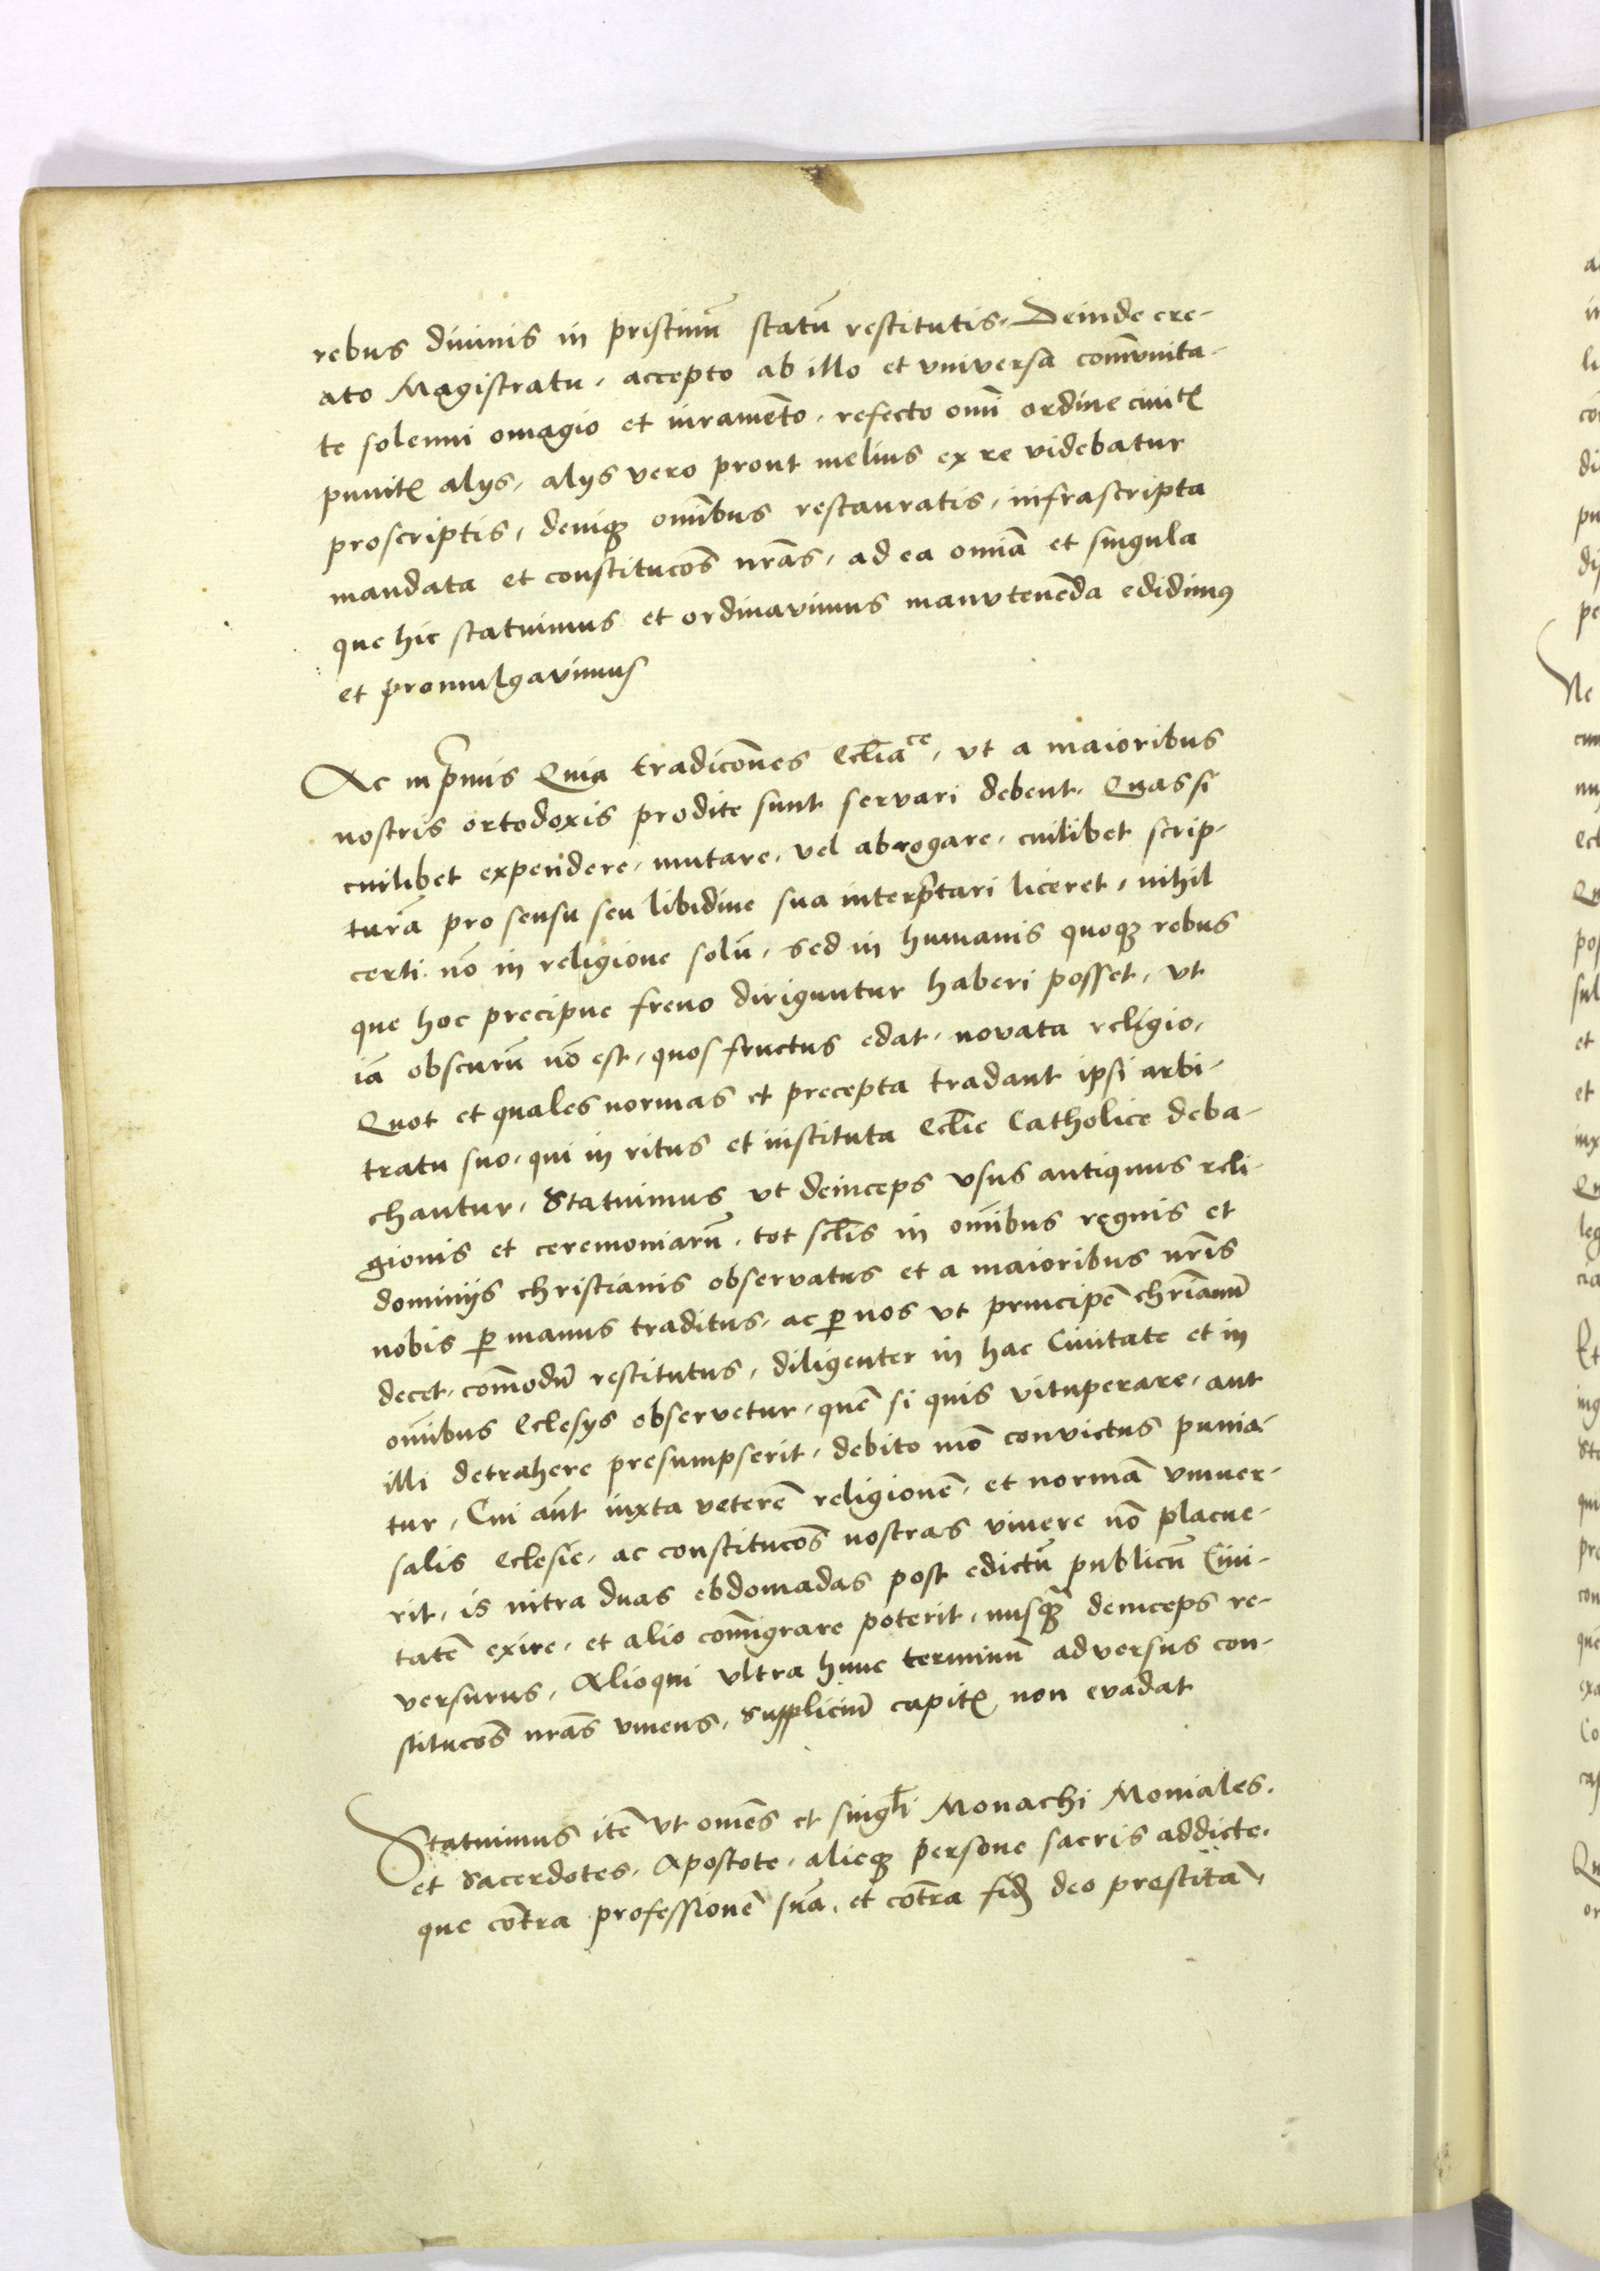 rebus diuinis in pristinū statū restitutis. Deinde cre-
ato Magistratu, accepto ab illo et vniversa comūnita-
te solenni omagio et iuramēto, refecto omī ordine ciuitꝭ
punitꝭ alijs, alijs vero prout melius ex re videbatur
proscriptis, deniqꝫ omībus restauratis, infrascripta
mandata et constitucōs nrās, ad ea omīa et singula
que hic statuimus et ordinavimus manvtenēda edidimꝰ
et promulgavimus
Ac inp̄rimis Quia tradicōnes Ecclīaᶜᵉ, vt a maioribus
nostris ortodoxis prodite sunt servari debent. Quas si
cuilibet expendere, mutare, vel abrogare, cuilibet scrip-
turā pro sensu seu libidine sua interp̄tari liceret, nihil
certi nō in religione solū, sed in humanis quoqꝫ rebus
que hoc precipue freno diriguntur haberi posset, vt
iā obscurū nō est, quos fructus edat, novata religio,
Quot et quales normas et precepta tradant ipsi arbi-
tratu suo, qui in ritus et instituta Ecclīe Catholice deba-
chantur, Statuimus vt deinceps vsus antiquus reli-
gionis et ceremoniarū, tot sclīs in omībus regnis et
dominijs christianis observatus et a maioribus nrīs
nobis ꝑ manus traditus, ac ꝑ nos vt principē chrīanū
decet, commodū restitutus, diligenter in hac Ciuitate et in
omībus Eclesijs observetur, quē si quis vituperare, aut
illi detrahere presumpserit, debito mō convictus punia-
tur, Cui aūt iuxta veterē religionē, et normā vniuer-
salis Eclesie, ac constitucōs nostras viuere nō placue-
rit, is intra duas ebdomadas post edictū publicū Ciui-
tatē exire, et alio comīgrare poterit, nusqꝫ̄ deinceps re-
versurus, Alioqui vltra hunc terminū adversus con-
stitucōs nrās viuens, Suppliciū capitꝭ non evadat
Statuimus itē vt omēs et singlī Monachi Moniales.
et Sacerdotes, Apostote, alieqꝫ persone sacris addicte,
que cōtra professionē suā, et cōtra fidē deo prestitā,